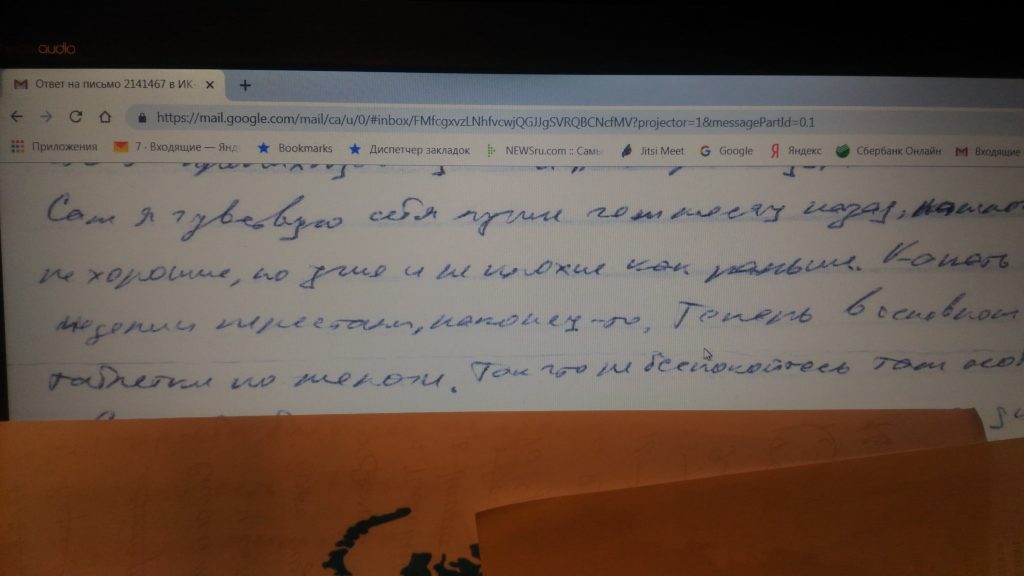 audio
Ответ на письмо 2141467 в ИК-
https://mail.google.com/mail/ca/u/0/#inbox/FMfcgxvzLNhfvcwjQGJJgSVRQBCNcfMV?projector=1&messagePartId=0.1
Приложения 7 · Входящие — Янд Bookmarks Диспетчер закладок NEWSru.com :: Самы Jitsi Meet Google Яндекс Сбербанк Онлайн Входящие
Сам я чувствую себя лучше чем месяц назад,
не хорошие, но уже и не плохие как раньше. Капать
недели перестали, наконец-то. Теперь в основном
таблетки по жизни. Так что не беспокойтесь там особ